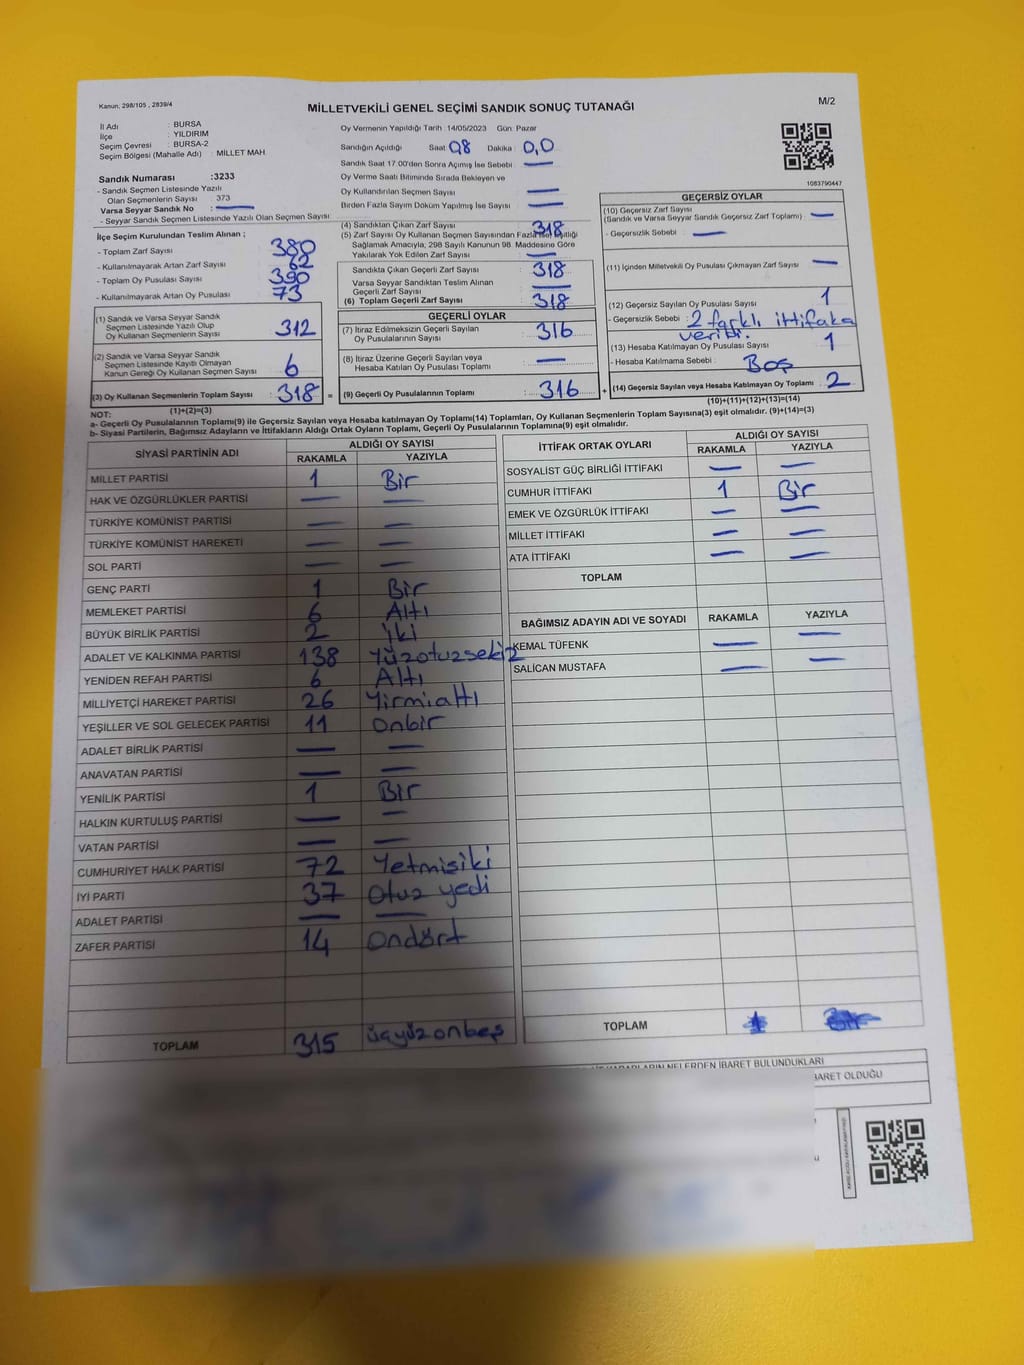 Kanun, 298/105 , 2839/4
MİLLETVEKİLİ GENEL SEÇİMİ SANDIK SONUÇ TUTANAĞI
M/2
İl Adı : BURSA
İlçe : YILDIRIM
Seçim Çevresi : BURSA-2
Seçim Bölgesi (Mahalle Adı) : MİLLET MAH
Sandık Numarası :3233
- Sandık Seçmen Listesinde Yazılı
Olan Seçmenlerin Sayısı : 373
Varsa Seyyar Sandık No : —
- Seyyar Sandık Seçmen Listesinde Yazılı Olan Seçmen Sayısı:
Oy Vermenin Yapıldığı Tarih : 14/05/2023 Gün: Pazar
Sandığın Açıldığı Saat 08 Dakika : 0,0
Sandık Saat 17:00'den Sonra Açılmış İse Sebebi : —
Oy Verme Saati Bitiminde Sırada Bekleyen ve
Oy Kullandırılan Seçmen Sayısı : —
Birden Fazla Sayım Döküm Yapılmış İse Sayısı : —
1083790447
İlçe Seçim Kurulundan Teslim Alınan ;
- Toplam Zarf Sayısı : 380
- Kullanılmayarak Artan Zarf Sayısı : 62
- Toplam Oy Pusulası Sayısı : 390
- Kullanılmayarak Artan Oy Pusulası : 73
(1) Sandık ve Varsa Seyyar Sandık
Seçmen Listesinde Yazılı Olup
Oy Kullanan Seçmenlerin Sayısı : 312
(2) Sandık ve Varsa Seyyar Sandık
Seçmen Listesinde Kayıtlı Olmayan
Kanun Gereği Oy Kullanan Seçmen Sayısı : 6
(3) Oy Kullanan Seçmenlerin Toplam Sayısı : 318
(1)+(2)=(3)
(4) Sandıktan Çıkan Zarf Sayısı : 318
(5) Zarf Sayısı Oy Kullanan Seçmen Sayısından Fazla ise, Eşitliği
Sağlamak Amacıyla, 298 Sayılı Kanunun 98. Maddesine Göre
Yakılarak Yok Edilen Zarf Sayısı : —
Sandıkta Çıkan Geçerli Zarf Sayısı : 318
Varsa Seyyar Sandıktan Teslim Alınan
Geçerli Zarf Sayısı : —
(6) Toplam Geçerli Zarf Sayısı : 318
GEÇERLİ OYLAR
(7) İtiraz Edilmeksizin Geçerli Sayılan
Oy Pusulalarının Sayısı : 316
(8) İtiraz Üzerine Geçerli Sayılan veya
Hesaba Katılan Oy Pusulaları Toplamı : —
= (9) Geçerli Oy Pusulalarının Toplamı : 316 +
GEÇERSİZ OYLAR
(10) Geçersiz Zarf Sayısı
(Sandık ve Varsa Seyyar Sandık Geçersiz Zarf Toplamı) : —
- Geçersizlik Sebebi : —
(11) İçinden Milletvekili Oy Pusulası Çıkmayan Zarf Sayısı : —
(12) Geçersiz Sayılan Oy Pusulası Sayısı : 1
- Geçersizlik Sebebi : 2 farklı ittifaka
verildi.
(13) Hesaba Katılmayan Oy Pusulası Sayısı : 1
- Hesaba Katılmama Sebebi : Boş
(14) Geçersiz Sayılan veya Hesaba Katılmayan Oy Toplamı : 2
(10)+(11)+(12)+(13)=(14)
NOT:
a- Geçerli Oy Pusulalarının Toplamı(9) ile Geçersiz Sayılan veya Hesaba katılmayan Oy Toplamı(14) Toplamları, Oy Kullanan Seçmenlerin Toplam Sayısına(3) eşit olmalıdır. (9)+(14)=(3)
b- Siyasi Partilerin, Bağımsız Adayların ve İttifakların Aldığı Ortak Oyların Toplamı, Geçerli Oy Pusulalarının Toplamına(9) eşit olmalıdır.
SİYASİ PARTİNİN ADI ALDIĞI OY SAYISI
RAKAMLA YAZIYLA
MİLLET PARTİSİ 1 Bir
HAK VE ÖZGÜRLÜKLER PARTİSİ — —
TÜRKİYE KOMÜNİST PARTİSİ — —
TÜRKİYE KOMÜNİST HAREKETİ — —
SOL PARTİ — —
GENÇ PARTİ 1 Bir
MEMLEKET PARTİSİ 6 Altı
BÜYÜK BİRLİK PARTİSİ 2 İki
ADALET VE KALKINMA PARTİSİ 138 Yüzotuzsekiz
YENİDEN REFAH PARTİSİ 6 Altı
MİLLİYETÇİ HAREKET PARTİSİ 26 Yirmialtı
YEŞİLLER VE SOL GELECEK PARTİSİ 11 Onbir
ADALET BİRLİK PARTİSİ — —
ANAVATAN PARTİSİ — —
YENİLİK PARTİSİ 1 Bir
HALKIN KURTULUŞ PARTİSİ — —
VATAN PARTİSİ — —
CUMHURİYET HALK PARTİSİ 72 Yetmişiki
İYİ PARTİ 37 Otuz yedi
ADALET PARTİSİ — —
ZAFER PARTİSİ 14 Ondört
TOPLAM 315 üçyüzonbeş
İTTİFAK ORTAK OYLARI ALDIĞI OY SAYISI
RAKAMLA YAZIYLA
SOSYALİST GÜÇ BİRLİĞİ İTTİFAKI — —
CUMHUR İTTİFAKI 1 Bir
EMEK VE ÖZGÜRLÜK İTTİFAKI — —
MİLLET İTTİFAKI — —
ATA İTTİFAKI — —
TOPLAM
BAĞIMSIZ ADAYIN ADI VE SOYADI RAKAMLA YAZIYLA
KEMAL TÜFENK — —
SALİCAN MUSTAFA — —
TOPLAM
NELERDEN İBARET BULUNDUKLARI
İBARET OLDUĞU